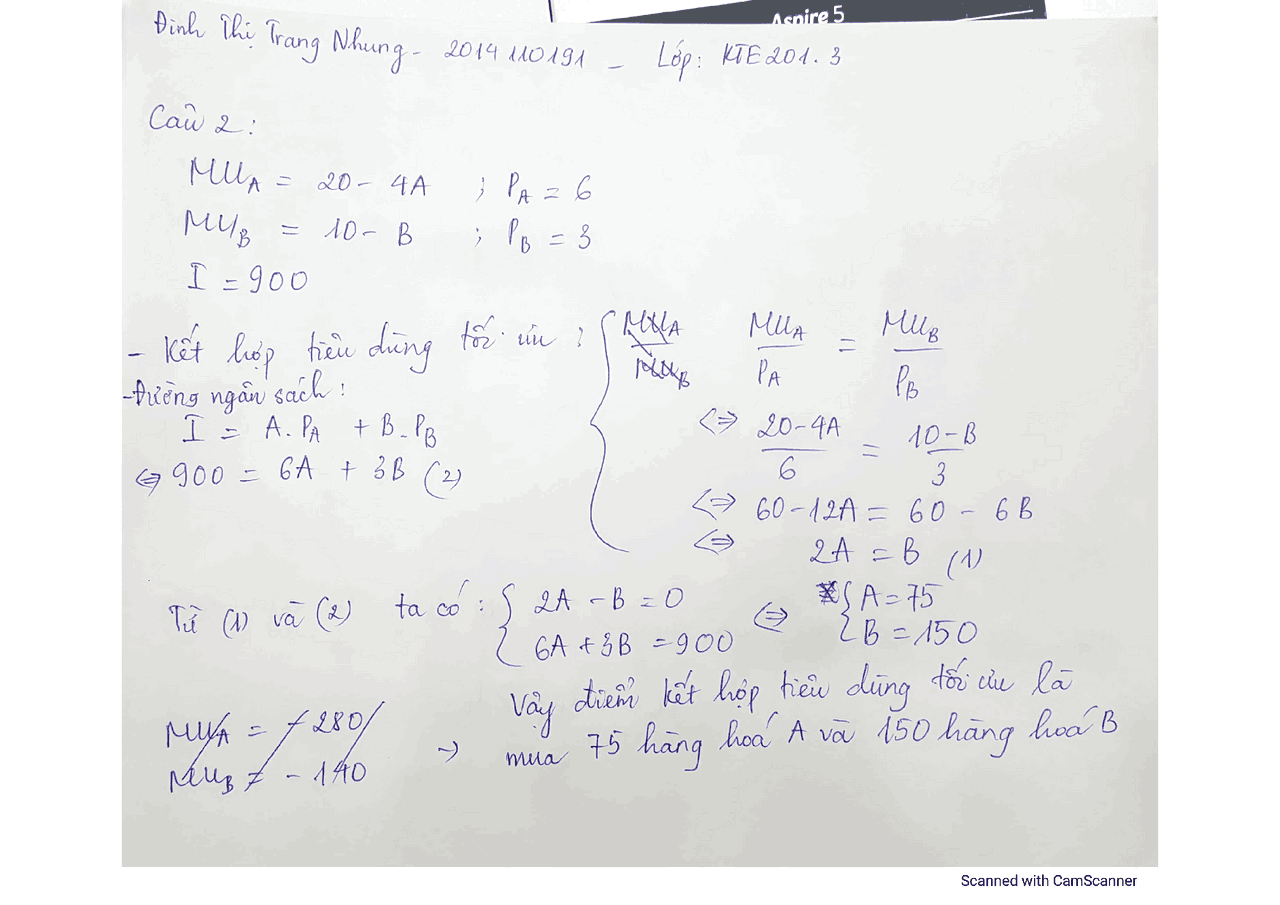 Aspire 5
Đinh Thị Trang Nhung - 2014110191 - Lớp: KTE201.3
Câu 2:
MU_A = 20 - 4A ; P_A = 6
MU_B = 10 - B ; P_B = 3
I = 900
- Kết hợp tiêu dùng tối ưu : { MU_A / MU_B MU_A / P_A = MU_B / P_B
- Đường ngân sách :
I = A.P_A + B.P_B
⇔ 900 = 6A + 3B (2)
⇔ 20-4A / 6 = 10-B / 3
⇔ 60 - 12A = 60 - 6B
⇔ 2A = B (1)
Từ (1) và (2) ta có : { 2A - B = 0 ⇔ { A = 75
6A + 3B = 900 B = 150
MU_A = -280
MU_B = -140
→ Vậy điểm kết hợp tiêu dùng tối ưu là
mua 75 hàng hoá A và 150 hàng hoá B
Scanned with CamScanner